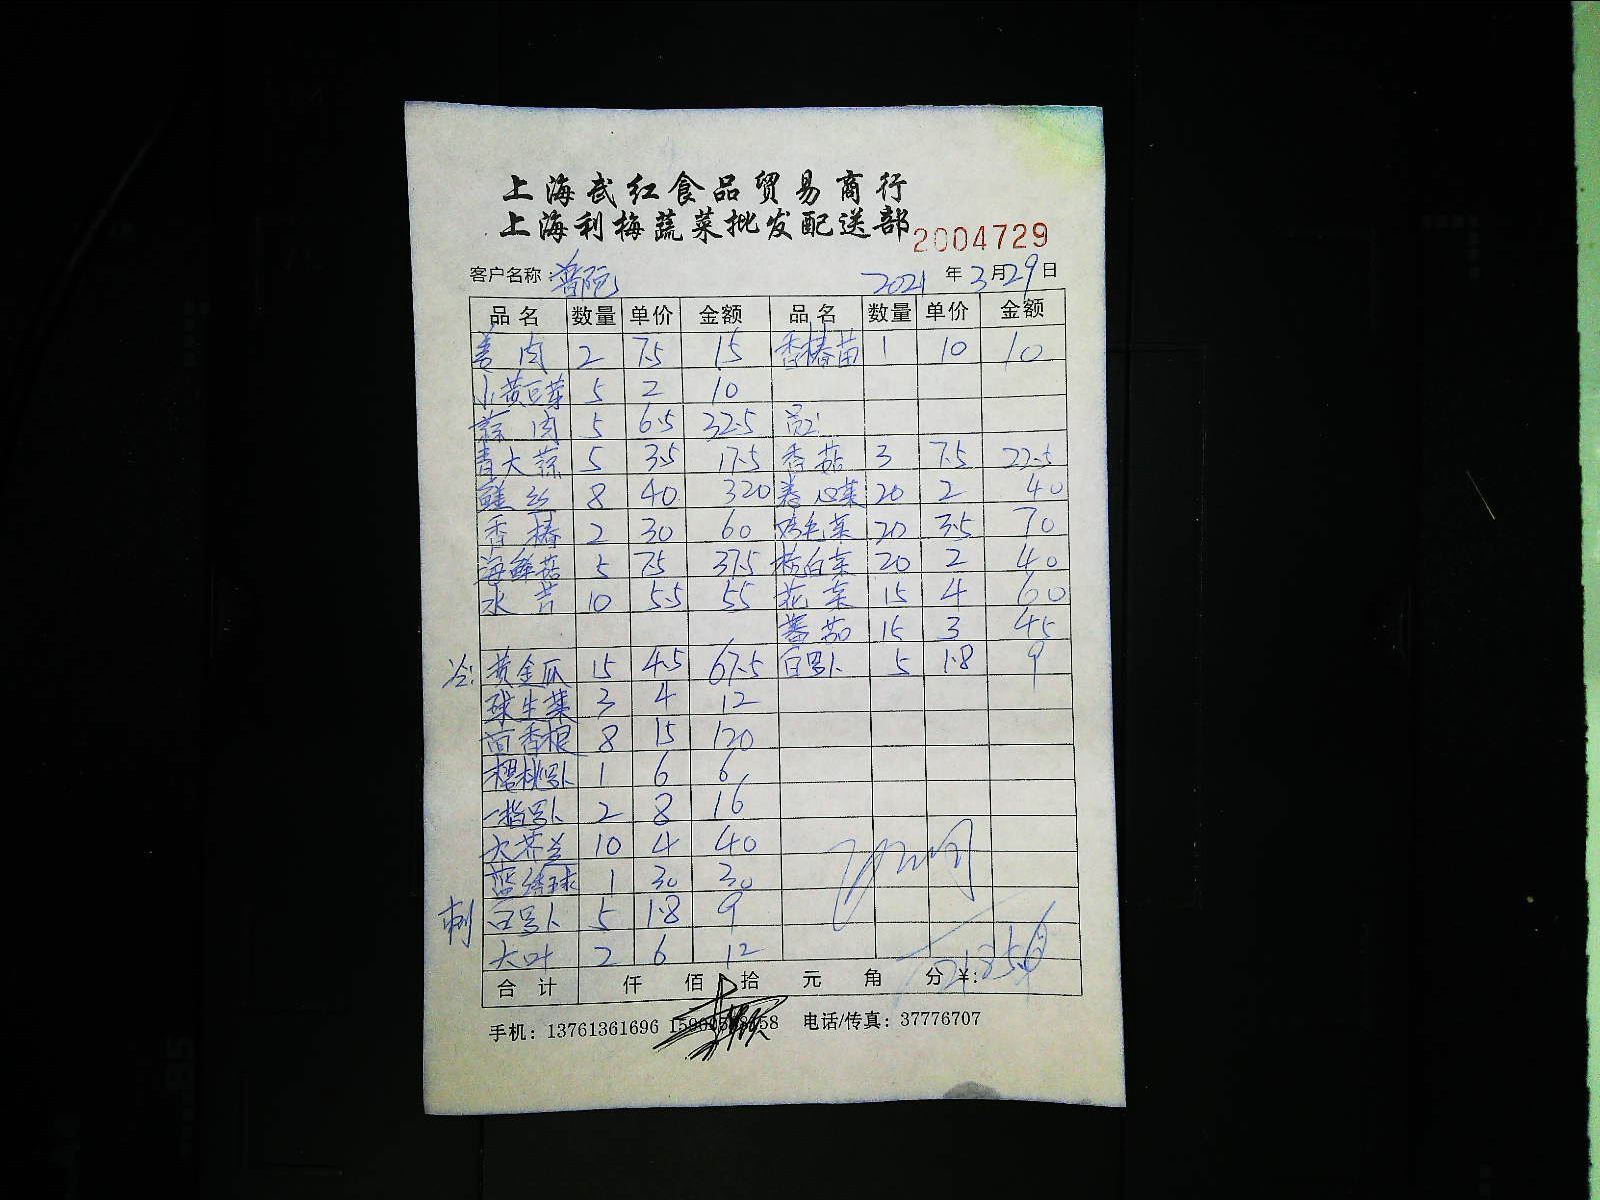 上海武红食品贸易商行
上海利梅蔬菜批发配送部 2004729
客户名称：普陀 2021 年 3 月 29 日
品名 数量 单价 金额 品名 数量 单价 金额
姜肉 2 7.5 15 香椿苗 1 10 10
小黄豆芽 5 2 10
蒜肉 5 6.5 32.5 员工:
青大蒜 5 3.5 17.5 香菇 3 7.5 22.5
鲑丝 8 40 320 卷心菜 20 2 40
香椿 2 30 60 鸡毛菜 20 3.5 70
海鲜菇 5 7.5 37.5 杭白菜 20 2 40
水芹 10 5.5 55 花菜 15 4 60
蕃茄 15 3 45
冷: 黄金瓜 15 4.5 67.5 白罗卜 5 1.8 9
球生菜 3 4 12
茴香根 8 15 120
樱桃罗卜 1 6 6
一指罗卜 2 8 16
大芥兰 10 4 40
30 30
刺 白罗卜 5 1.8 9
大叶 2 6 12
合计 仟 佰 拾 元 角 分 ¥:
手机：13761361696 电话/传真：37776707